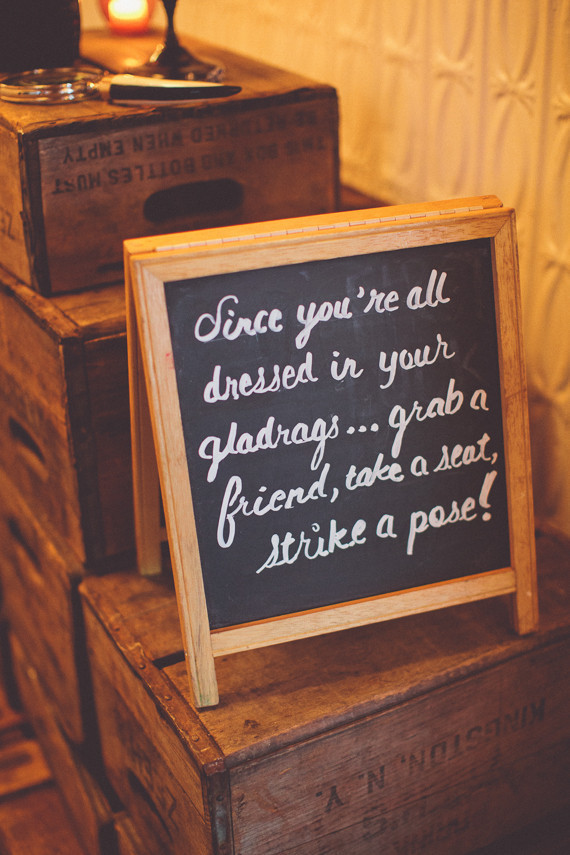 THIS BOX AND BOTTLES MUST
BE RETURNED WHEN EMPTY
Since you're all
dressed in your
gladrags... grab a
friend, take a seat,
strike a pose!
KINGSTON, N.Y.